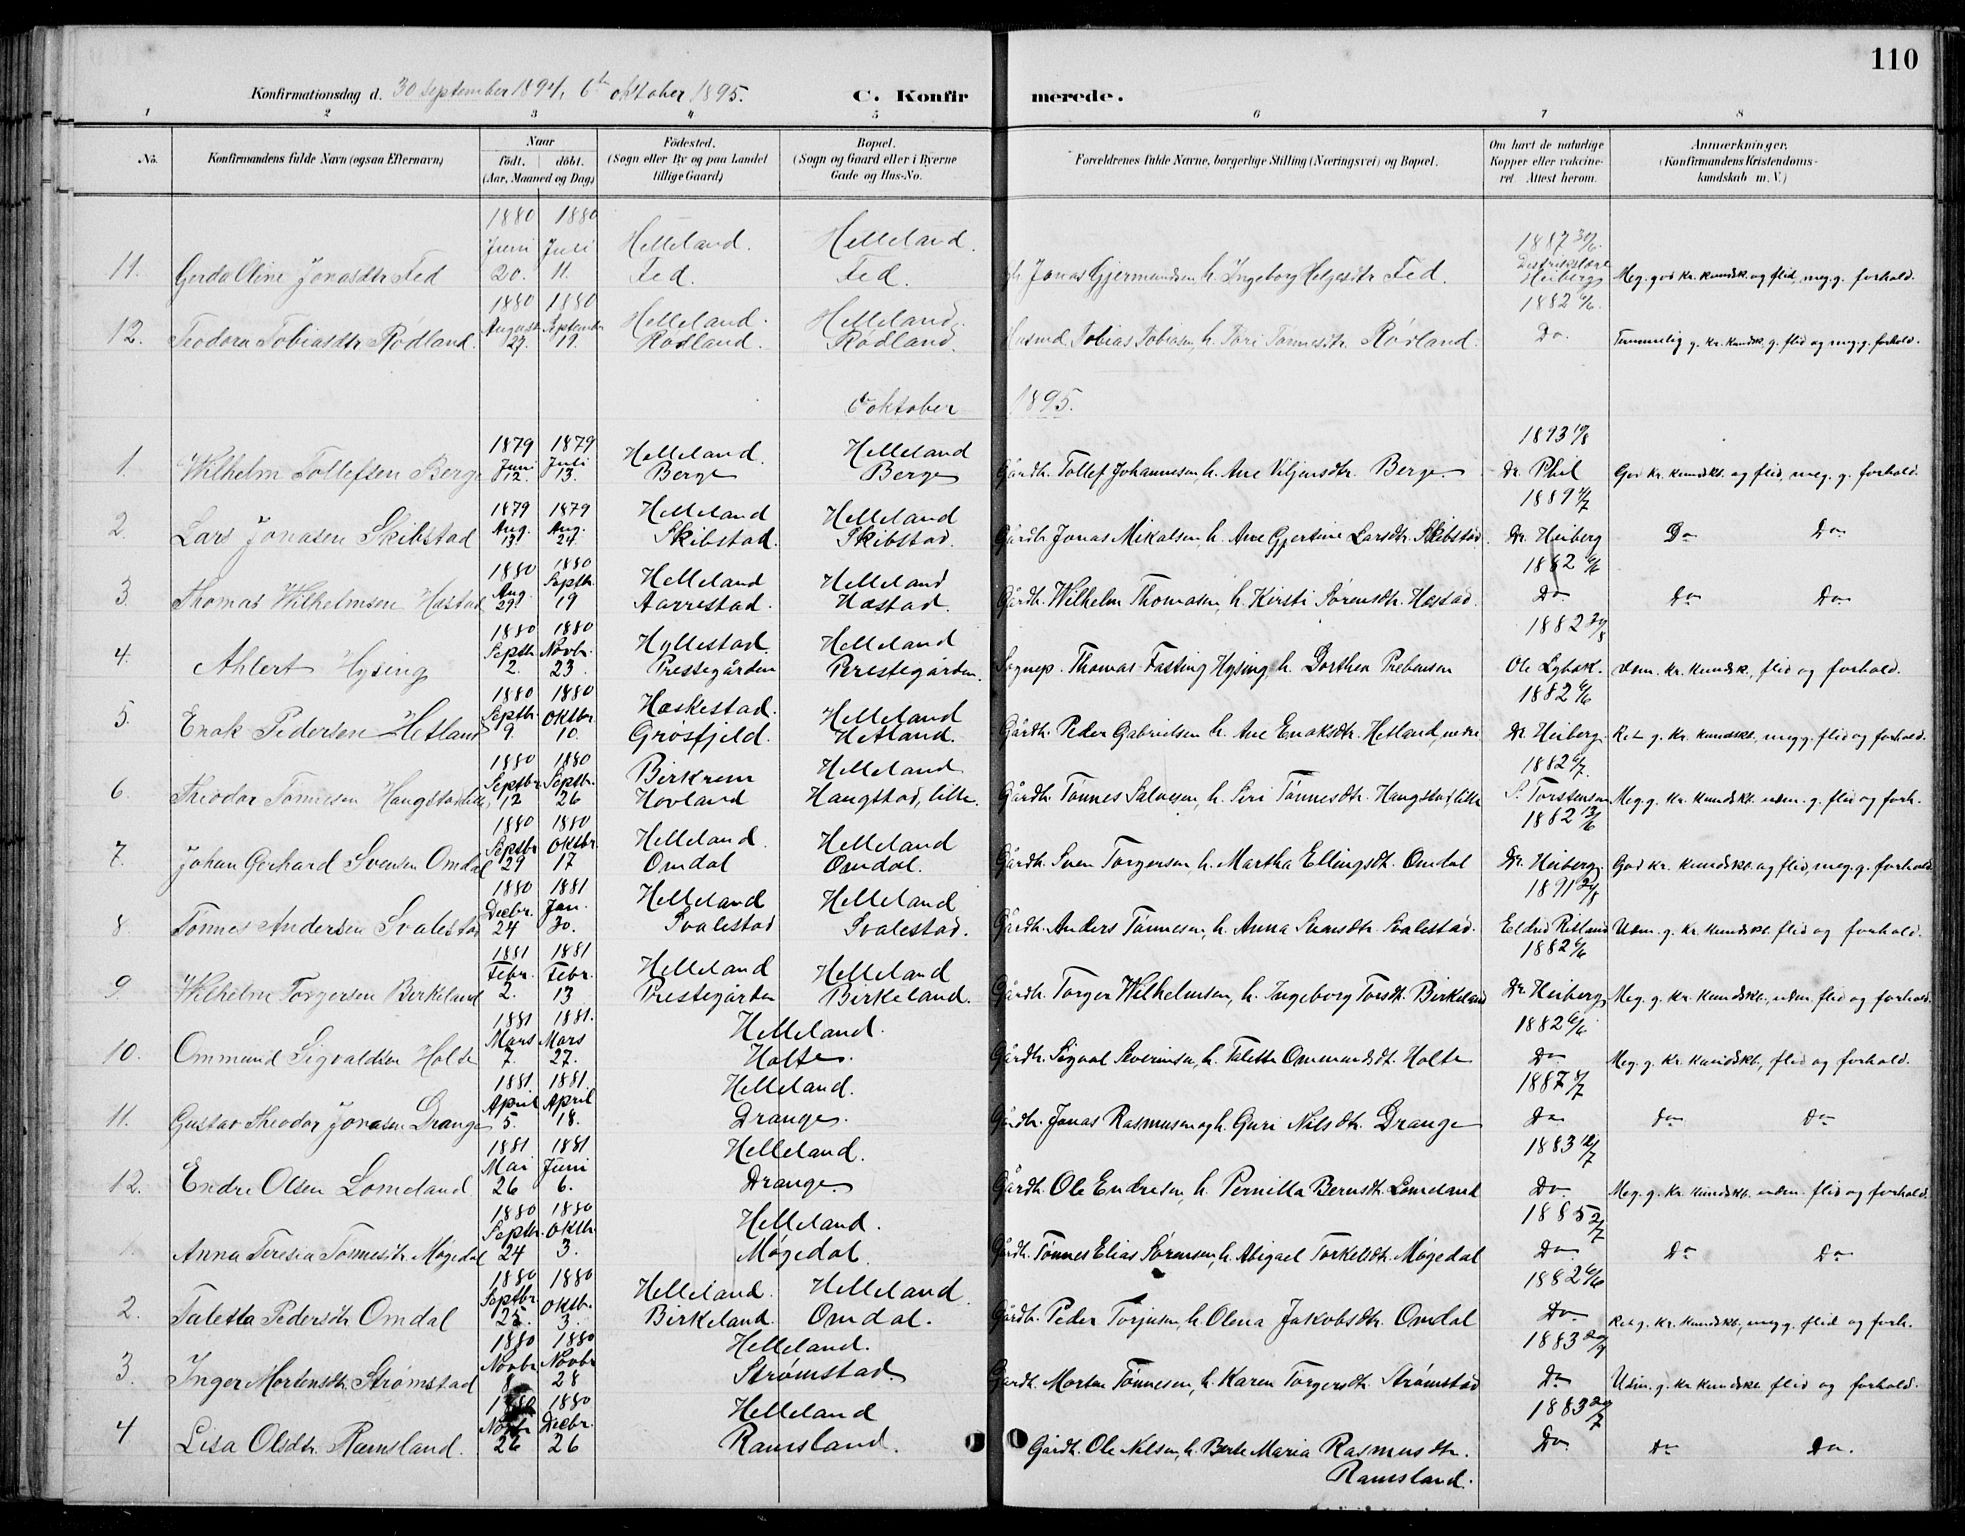 110
Konfirmationsdag d. 30 September 1894, 6te oktober 1895. C. Konfirmerede.
1 2 3 4 5 6 7 8
No. Konfirmandens fulde Navn (ogsaa Efternavn) Naar födt. döbt. (Aar, Maaned og Dag) Födested. (Sogn eller By og paa Landet tillige Gaard) Bopæl. (Sogn og Gaard eller i Byerne Gade og Hus-No. Forældrenes fulde Navne, borgerlige Stilling (Næringsvei) og Bopæl. Om havt de naturlige Kopper eller vakcineret Attest herom. Anmerkninger. (Konfirmandens Kristendomskundskab m. V.)
1880 1880 1887 30/6.
Juni Juli Helleland. Helleland. Distriktslæge
11. Gerda Oline Jonasdtr Fed 20. 11. Fed. Fed. Jonas Gjermundsen, h. Ingeborg Helgesdtr Fed. Heiberg Meg. god kr. kundsk. og flid, meg. g. forhold.
1880 1880 1882 6/6.
August September Helleland. Helleland.
12. Teodora Tobiasdtr Rødland. 29. 19. Rødland. Rødland. Husmd. Tobias Tobiasen, h. Siri Tønnesdtr. Rødland. Do. Temmelig g. kr. kundsk., g. flid og meg. g. forhold.
6te oktober 1895.
1879 1879 Helleland. Helleland 1893
1. Wilhelm Tollefsen Berge Juni 12. Juli 13. Berge Berge Gårdb. Tollef Johannesen, h. Ane Viljensdtr. Berge. Dr. Phil God kr. kundsk. og flid, meg. g. forhold.
1879 1879 Helleland Helleland 1889
2. Lars Jonasen Skibstad Aug. 13 Aug. 24. Skibstad. Skibstad. Gårdb. Jonas Mikalsen, h. Ane Gjertine Larsdtr. Skibstad. Dr. Heiberg Do Do
1880 1880 Helleland Helleland 1882 6/6
3. Thomas Wilhelmsen Hæstad Aug. 29. Septbr. 19 Aarrestad. Hæstad. Gårdb. Wilhelm Thomasen, h. Kirsti Sørensdtr. Hæstad. Do Do Do
1880 1880 Hyllestad. Helleland 1882
4. Ahlert Hysing Septbr. 2. Novbr. 23. Prestegården Prestegården. Sognep. Thomas Fasting Hysing, h. Dorthea Prebensen Ole Lybæk. Udm. kr. kundsk., flid og forhold.
1880 1880 Hæskestad. Helleland 1882 6/6
5. Enok Pedersen Hetland Septbr. 9. Oktbr. 10. Grøsfjeld. Hetland. Gårdb. Peder Gabrielsen h. Ane Enoksdtr. Hetland, nedre Dr. Heiberg. Ret g. kr. kundskb., meg g. flid og forhold.
1880 1880 Birkrem Helleland 1882 6/7.
6. Theodor Tønnesen Haugstad lille, Septbr. 12 Septbr. 26 Hovland Haugstad, lille. Gårdb. Tønnes Salvesen, h. Siri Tønnesdtr. Haugstad, lille S. Torstensen Meg. g. kr. kundskb. udm. g. flid og forh.
1880 1880 Helleland. Helleland 1882 13/6
7. Johan Gerhard Svensen Omdal Septbr 29 Oktbr. 17 Omdal Omdal. Gårdb. Sven Torgersen, h. Martha Ellingsdtr. Omdal Dr. Heiberg. God kr. kundskb. og flid, meg. g. forhold
1880 1881 Helleland Helleland 1891
8. Tønnes Andersen Svalestad Decbr. 24 Jan. 30. Svalestad Svalestad. Gårdb. Anders Tønnesen, h. Anna Svensdtr. Svalestad. Eldrid Risland Udm. g. kr. kundskb. flid og forhold.
1881 1881 Helleland Helleland 1882 6/6
9. Wilhelm Torgersen Birkeland Febr. 2. Febr. 13 Prestegården Birkeland. Gårdb. Torger Wilhelmsen, h. Ingeborg Torsdtr. Birkeland Dr. Heiberg, Meg. g. kr. kundskb., udm. flid og forhold.
1881 1881. Helleland. 1882 6/6
10. Ommund Sigvaldsen Holte Mars 7. Mars 27. Holte. Gårdb. Sigval Severinsen, h. Talette Ommundsdtr. Holte Do Meg. g. kr. kundskb., flid og forhold.
1881 1881. Helleland. 1887
11. Gustav Theodor Jonasen Drange April 5. April 18. Drange. Gårdbr. Jonas Rasmusen og h. Guri Nilsdtr. Drange Do Do Do
1881 1881 Helleland. 1883
12. Endre Olsen Lomeland Mai 26 Juni 6. Drange Gårdb. Ole Endresen, h. Pernilla Berntsdtr. Lomeland Do. Meg. g. kr. kundskb. udm. flid og forhold.
1880 1880 Helleland. 1885
1. Anna Teresia Tønnesdtr. Møgedal Septbr. 24 Oktbr. 3. Møgedal. Gårdb. Tønnes Elias Sørensen, h. Abigael Torkelsdtr. Møgedal Do Do Do
1880 1880 Helleland. Helleland. 1882 6/6
2. Taletta Pedersdtr Omdal Septbr. 25. Oktbr. 3. Birkeland. Omdal. Gårdb. Peder Torjusen, h. Olena Jakobsdtr. Omdal Do Ret g. kr. kundskb., meg g. flid og forh.
1880 1880 Helleland. 1883
3. Inger Mortensdtr. Strømstad Novbr. 8 Novbr 28 Strømstad. Gårdb. Morten Tønnesen, h. Karen Torgersdtr. Strømstad Do Udm. g. kr. kundskb. flid og forhold.
1880 1880 Helleland 1883
4 Lisa Olsdtr. Ramsland. Novbr 26 Decbr. 26 Ramsland. Gårdb. Ole Nilsen, h. Berte Maria Rasmusdtr. Do Do Do.
Ramsland.